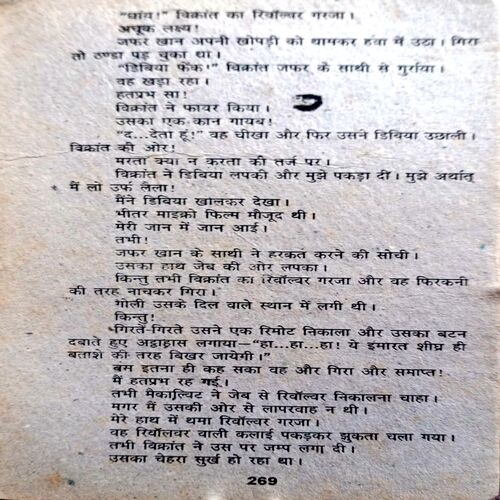 "धांय!" विक्रांत का रिवॉल्वर गरजा।
अचूक लक्ष्य!
जफर खान अपनी खोपड़ी को थामकर हवा में उठा। गिरा
तो ठण्डा पड़ चुका था।
"डिबिया फेंक!" विक्रांत जफर के साथी से गुर्राया।
वह खड़ा रहा।
हतप्रभ सा!
विक्रांत ने फायर किया।
उसका एक-कान गायब!
"द...देता हूं!" वह चीखा और फिर उसने डिबिया उछाली।
विक्रांत की ओर!
मरता क्या न करता की तर्ज पर।
विक्रांत ने डिबिया लपकी और मुझे पकड़ा दी। मुझे अर्थात्
मैं लो उर्फ लैला!
मैंने डिबिया खोलकर देखा।
भीतर माइक्रो फिल्म मौजूद थी।
मेरी जान में जान आई।
तभी!
जफर खान के साथी ने हरकत करने की सोची।
उसका हाथ जेब की ओर लपका।
किन्तु तभी विक्रांत का रिवॉल्वर गरजा और वह फिरकनी
की तरह नाचकर गिरा।
गोली उसके दिल वाले स्थान में लगी थी।
किन्तु!
गिरते-गिरते उसने एक रिमोट निकाला और उसका बटन
दबाते हुए अट्टाहास लगाया—"हा...हा...हा! ये इमारत शीघ्र ही
बताशे की तरह बिखर जायेगी।"
बस इतना ही कह सका वह और गिरा और समाप्त!
मैं हतप्रभ रह गई।
तभी मैकाल्विट ने जेब से रिवॉल्वर निकालना चाहा।
मगर मैं उसकी ओर से लापरवाह न थी।
मेरे हाथ में थमा रिवॉल्वर गरजा।
वह रिवॉलवर वाली कलाई पकड़कर झुकता चला गया।
तभी विक्रांत ने उस पर जम्प लगा दी।
उसका चेहरा सुर्ख हो रहा था।
269